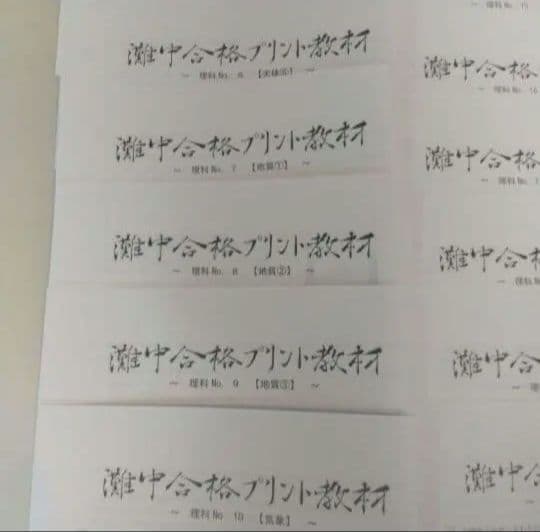 灘中合格プリント教材
～ 理科No. 6 【天体⑥】 ～
灘中合格プリント教材
～ 理科No. 7 【地質①】 ～
灘中合格プリント教材
～ 理科No. 8 【地質②】 ～
灘中合格プリント教材
～ 理科No. 9 【地質③】 ～
灘中合格プリント教材
～ 理科No. 10 【気象】 ～
～ 理科No. 15
灘中合格
～ 理科No. 16
灘中合格
～ 理科No. 1
灘中合格
～ 理科N
灘中合格
～ 理
灘中合